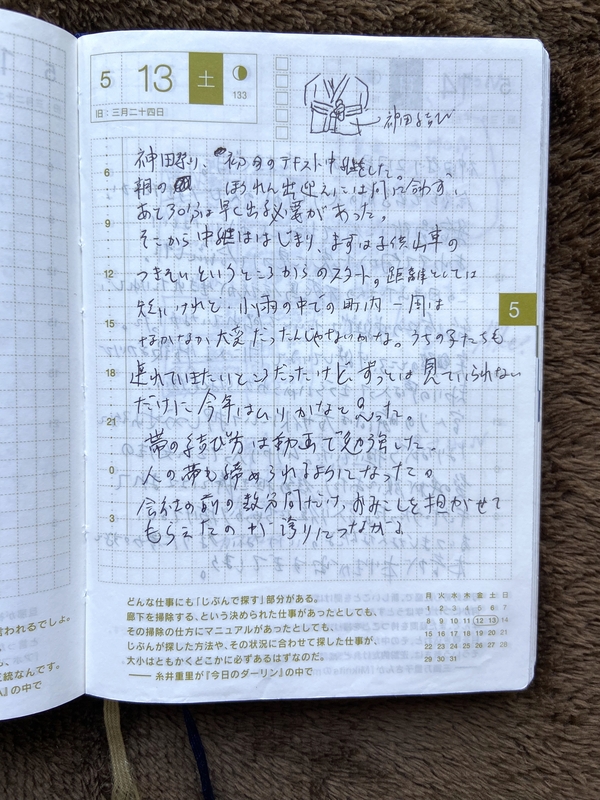 5 13 土
133
旧：三月二十四日
神田結び
6
9
12
15
18
21
0
3
神田祭り、初めのテキスト中継をした。
朝の ほうれん出迎えには間に合わず、
あと30分は早く出る必要があった。
そこから中継ははじまり、まずは子供山車の
つきそいというところからのスタート。距離としては
短いけれど、小雨の中での町内一周は
なかなか大変だったんじゃないかな。うちの子たちも
連れて出たいところだったけど、ずっとは見ていられない
だけに今年はムリかなと思った。
帯の結び方は動画で勉強した。
人の帯も締められるようになった。
会社の前の数分間だけ、おみこしを担がせて
もらえたのが誇りにつながる
5
どんな仕事にも「じぶんで探す」部分がある。
廊下を掃除する、という決められた仕事があったとしても、
その掃除の仕方にマニュアルがあったとしても、
じぶんが探した方法や、その状況に合わせて探した仕事が、
大小はともかくどこかに必ずあるはずなのだ。
―― 糸井重里が『今日のダーリン』の中で
月 火 水 木 金 土 日
1 2 3 4 5 6 7
8 9 10 11 12 13 14
15 16 17 18 19 20 21
22 23 24 25 26 27 28
29 30 31
言われるでしょ。
続なんです。
の中で